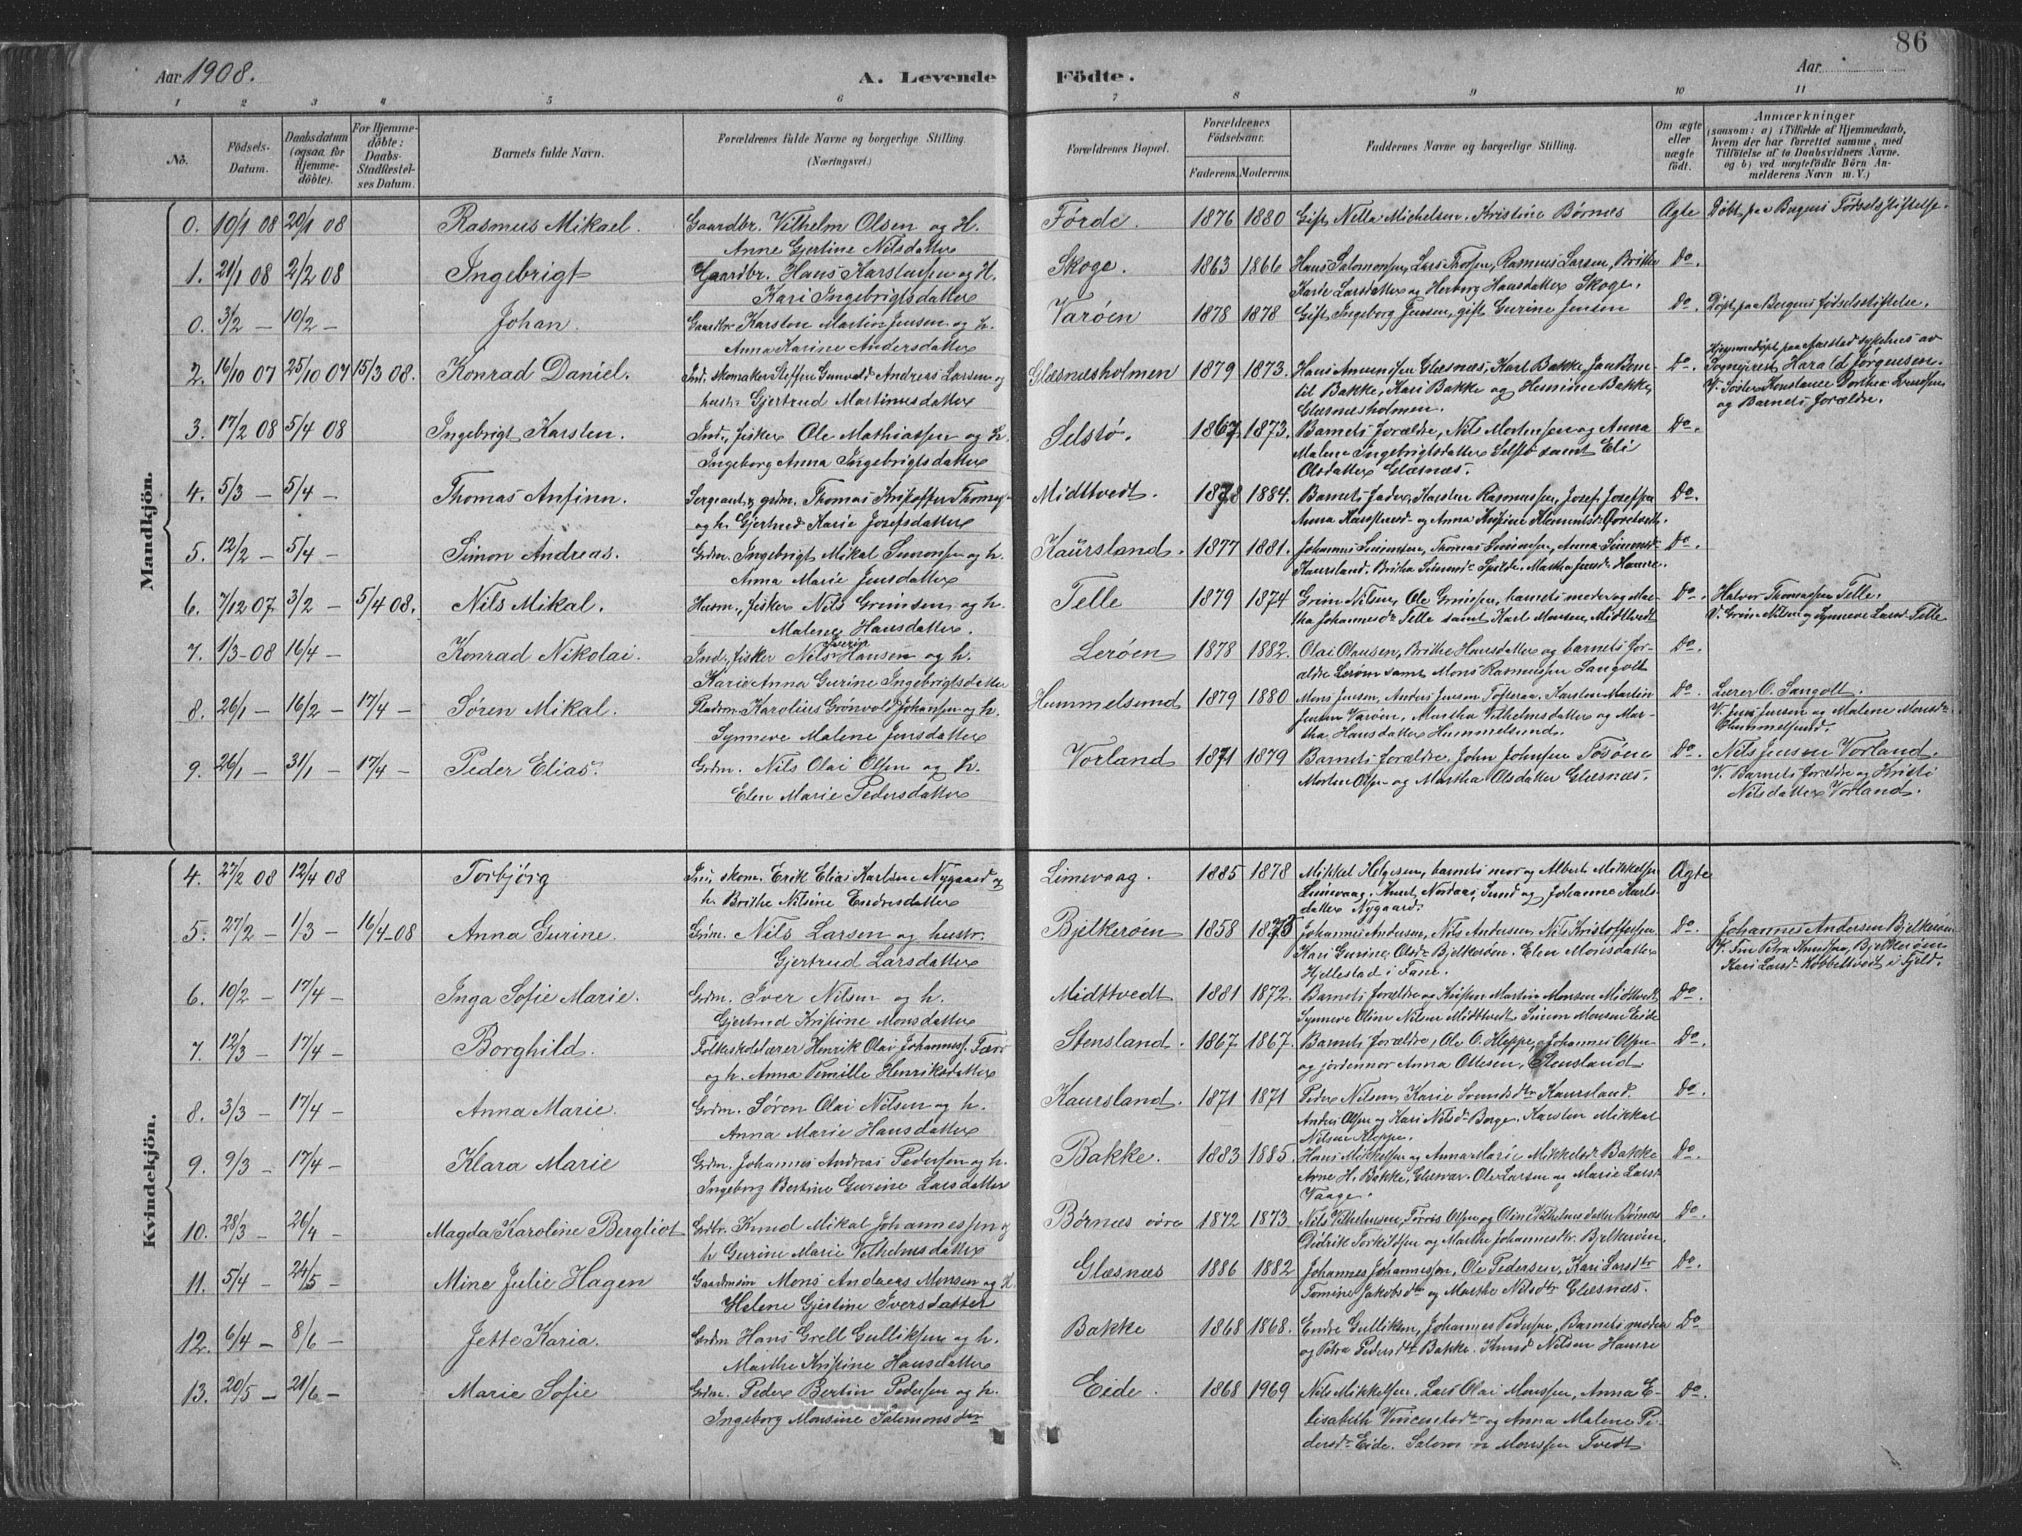 86
Aar 1908.
A. Levende Födte.
Aar
1 2 3 4 5 6 7 8 9 10 11
No.
Födsels-Datum.
Daabsdatum (ogsaa for Hjemme-døbte).
For Hjemme-døbte: Daabs-Stadfæstel-ses Datum.
Barnets fulde Navn.
Forældrenes fulde Navne og borgerlige Stilling.
(Næringsvei.)
Forældrenes Bopæl.
Forældrenes Fødselsaar.
Faderens. Moderens.
Faddernes Navne og borgerlige Stilling.
Om ægte eller uægte født.
Anmærkninger
(saasom: a) i Tilfælde af Hjemmedaab,
hvem der har forrettet samme, med
Tilføielse af to Daabsvidners Navne.
og b) ved uægtefødte Börn An-
melderens Navn m. V.)
Mandkjön.
0. 10/1 08 20/1 08 Rasmus Mikael. Gaardbr. Vilhelm Olsen og H. Førde. 1876 1880 Gift Nella Michelsen. Kristine Børnes Ægte Døbt paa Bergens Fødselsstiftelse.
Anne Gjertine Nilsdatter
1. 21/1 08 2/2 08 Ingebrigt Gaardbr. Hans Karstensen og H. Skoge. 1863 1866 Hans Salomonsen, Lars Thorsen, Rasmus Larsen, Brithe Do.
Kari Ingebrigtsdatter Karie Larsdatter og Herborg Hansdatter Skoge.
0. 3/2 — 10/2 — Johan. Gaardbr Karsten Martin Jensen og h. Varøen 1878 1878 Gift Ingeborg Jensen, gift Gurine Jensen Do. Døbt paa Bergens fødselsstiftelse.
Anna Karine Andersdatter
2. 16/10 07 25/10 07 15/3 08. Konrad Daniel. Ind. Skomaker Steffen Gunvald Andreas Larsen og Glæsnesholmen 1879 1873. Hans Amundsen Glæsnes, Karl Bakke, Do. Hjemmedøpt paa Aarstad sykehus av
hustr. Gjertrud Martinusdatter Bakke, Kari Bakke og Bakke, Sogneprest Harald Jørgensen.
Glæsnesholmen. V. Søster Konstance Dorthea
og Barnets forældre.
3. 17/2 08 5/4 08 Ingebrigt Karsten. Ind., fisker Ole Mathiassen og h. Selstø. 1867 1873. Barnets forældre, Nils Mortensen og Anna Do.
Ingeborg Anna Ingebrigtsdatter Malene Ingebrigtsdatter Selstø samt Eli
Olsdatter Glæsnes.
4. 5/3 — 5/4 — Thomas Anfinn. Sergeant & grdm. Thomas Kristoffer Midttvedt. 1878 1884. Barnets fader, Karsten Rasmussen, Josef Josefsen Do.
og h. Gjertrud Karie Josefsdatter Anna og Anna Kristine
5. 12/2 — 5/4 — Simon Andreas. Grdm. Ingebrigt Mikal Simonsen og h. Kaursland. 1877 1881. Johannes Simonsen, Thomas Simonsen, Anna Simonsd. Do.
Anna Marie Jensdatter Kaursland. Britha Simonsd. Spilde. Martha Jensd. Hamre.
6. 7/12 07 3/2 — 5/4 08. Nils Mikal. Husm., fisker Nils Greinsen og h. Telle 1879 1874 Grein Nilsen, Ole Greinsen, barnets moder og Mar- Do. Halvor Thomassen Telle.
Malene Hansdatter. tha Johannesd. Telle samt Karl Monsen, Midttvedt V. Grein Nilsen og Synneve Larsd. Telle
7. 1/3-08 16/4 — Konrad Nikolai. Ind., fisker Nils Severin Hansen og h. Lerøen 1878 1882. Olai Olausen, Brithe Hansdatter og barnets for- Do.
Karie Anna Gurine Ingebrigtsdatter ældre Lerøen samt Mons Rasmussen Sangolt
8. 26/1 — 16/2 — 17/4 — Søren Mikal. Pladsm. Karolius Grönvold Johansen og h. Hummelsund 1879 1880 Mons Jensen, Anders Jensen Tofteraa. Karsten Martin Do. Lærer O. Sangolt.
Synneve Malene Jensdatter Jensen Varøen, Martha Vilhelmsdatter og Mar- V. Jens Jensen og Malene Monsd.
tha Hansdatter Hummelsund. Hummelsund.
9. 26/1 — 31/1 — 17/4 — Peder Elias. Grdm. Nils Olai Olsen og h. Vorland 1871 1879 Barnets forældre, John Johnsen Tosøen Do. Nils Jensen Vorland.
Elen Marie Pedersdatter Morten Olsen og Martha Olsdatter Glæsnes. V. Barnets forældre og Kristi
Nilsdatter Vorland.
Kvindekjön.
4. 27/2 08 12/4 08 Torbjørg Ind., skom. Erik Elias Karlsen Nygaard og Limevaag. 1885 1878 Mikkel Helgesen, barnets mor og Albert Mikkelsen Ægte
h. Brithe Nilsine Endresdatter Limevaag. Knut Nordaas, Sund og Johanne Karls-
datter Nygaard.
5. 27/2 — 1/3 — 16/4-08 Anna Gurine. Grdm. Nils Larsen og hustr. Bjelkerøen 1858 1875 Johannes Andersen, Nils Andersen, Nils Kristoffersen Do. Johannes Andersen Bjelkerøen
Gjertrud Larsdatter Kari Gurine Olsd. Bjelkerøen. Elen Monsdatter V. Fru Petra Knudsen, Bjelkerøen
Hjellestad i Fane. Kari Larsd. Kobbeltvedt i Fjeld.
6. 10/2 — 17/4 — Inga Sofie Marie. Grdm. Iver Nilsen og h. Midttvedt 1881 1872. Barnets forældre og Kristen Martin Monsen Midttvedt Do.
Gjertrud Kristine Monsdatter Synneve Oline Nilsen Midttvedt Simon Monsen Eide
7. 12/3 — 17/4 — Borghild. Folkeskolelærer Henrik Olai Johanness. Færø Stensland. 1867 1867. Barnets forældre, Ole O. Kleppe, Johannes Olsen Do.
og h. Anna Pernille Henriksdatter og jordemor Anna Ottesen, Stensland
8. 3/3 — 17/4 — Anna Marie. Grdm. Søren Olai Nilsen og h. Kaursland. 1871 1871 Peder Nilsen, Karie Kaursland. Do.
Anna Marie Hansdatter Anders Olsen og Kari Nilsd. Berge. Karsten Mikkal
Nilsen Kleppe.
9. 9/3 — 17/4 — Klara Marie Grdm. Johannes Andreas Pedersen og h. Bakke. 1883 1885. Hans Mikkelsen og Anna Marie Mikkelsd. Bakke Do.
Ingeborg Bertine Gurine Larsdatter Arne H. Bakke, Glesvær. Ole Larsen og Marie Larsd.
Vaage.
10. 28/3 — 26/4 — Magda Karoline Bergliot Grdbr. Knud Mikal Johannessen og Børnæs øvre 1872 1873 Nils Vilhelmsen, Tørris Olsen og Oline Vilhelmsdatter Børnæs Do.
h Gurine Marie Vilhelmsdatter Didrik Torkildsen og Marthe Johannesdtr. Bjelkerøen.
11. 5/4 — 24/5 — Mine Julie Hagen Gaardmsøn Mons Andreas Monsen og H. Glæsnæs 1886 1882 Johannes Johannessen, Ole Pedersen, Kari Larsdtr Do.
Helene Gjertine Iversdatter Tomine Jakobsdtr og Marthe Nilsdtr Glæsnæs.
12. 6/4 — 8/6 — Jette Karia. Grdm Hans Grell Gulliksen og h. Bakke 1868 1868. Endre Gulliksen, Johannes Pedersen, Barnets moder Do
Marthe Kristine Hansdatter og Petra Pedersdtr Bakke. Knud Nilsen Hamre
13. 20/5 — 21/6 — Marie Sofie Grdm. Peder Bertin Pedersen og h. Eide. 1868 1969 Nils Mikkelsen. Lars Olai Monssen, Anna E- Do.
Ingeborg Monsine Salomonsdtr lisabeth Vincentsdtr og Anna Malene Pe-
dersd. Eide. Salomon Monssen Tvedt